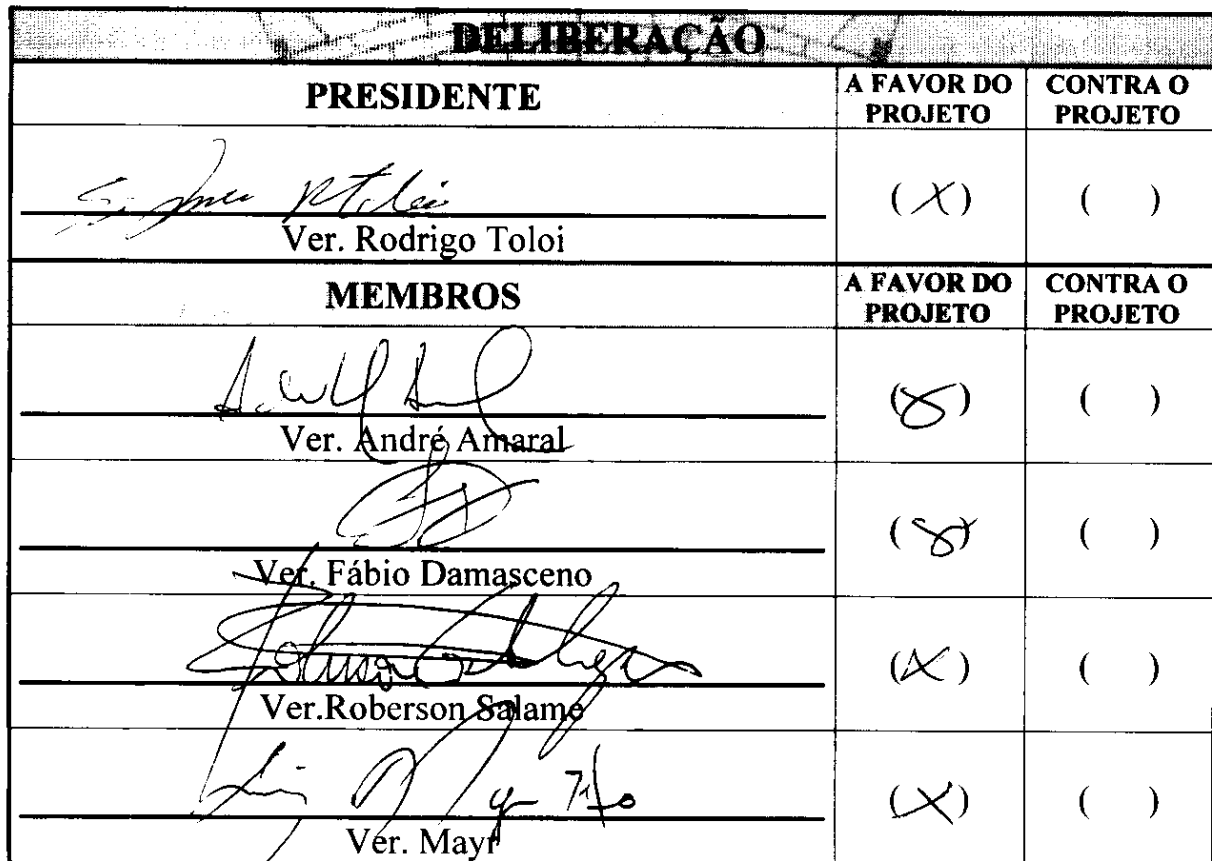 DELIBERAÇÃO
PRESIDENTE A FAVOR DO PROJETO CONTRA O PROJETO
Ver. Rodrigo Toloi (X) ( )
MEMBROS A FAVOR DO PROJETO CONTRA O PROJETO
Ver. André Amaral (X) ( )
Ver. Fábio Damasceno (X) ( )
Ver.Roberson Salame (X) ( )
Ver. Mayr (X) ( )